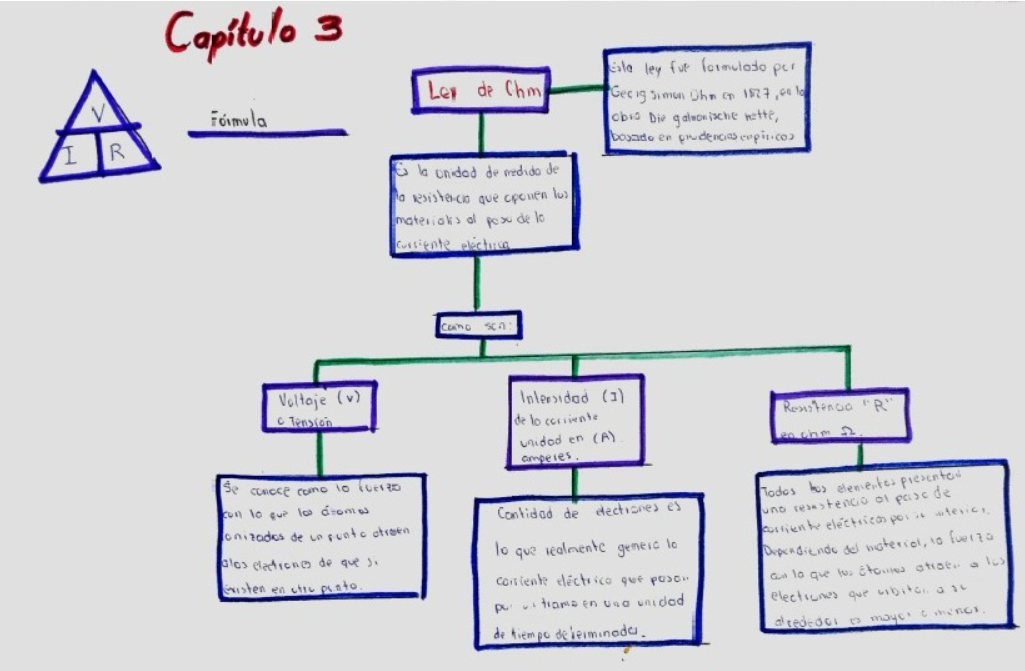 Capítulo 3
V
I R
Fórmula
Ley de Ohm
Esta ley fue formulado por
Georg Simon Ohm en 1827, en la
obra Die galvanische kette,
basado en evidencias empíricos
Es la unidad de medida de
la resistencia que oponen los
materiales al paso de la
corriente eléctrica
como son:
Voltaje (v)
o Tensión
Intensidad (I)
de la corriente
unidad en (A).
amperes.
Resistencia "R"
en ohm Ω.
Se conoce como la fuerza
con la que los átomos
ionizados de un punto atraen
a los electrones de que si
existen en otro punto.
Cantidad de electrones es
lo que realmente genera la
corriente eléctrica que pasan
por un tramo en una unidad
de tiempo determinada.
Todos los elementos presentan
una resistencia al paso de
corriente eléctricas por su interior.
Dependiendo del material, la fuerza
con la que los átomos atraen a los
electrones que orbitan a su
alrededor es mayor o menor.